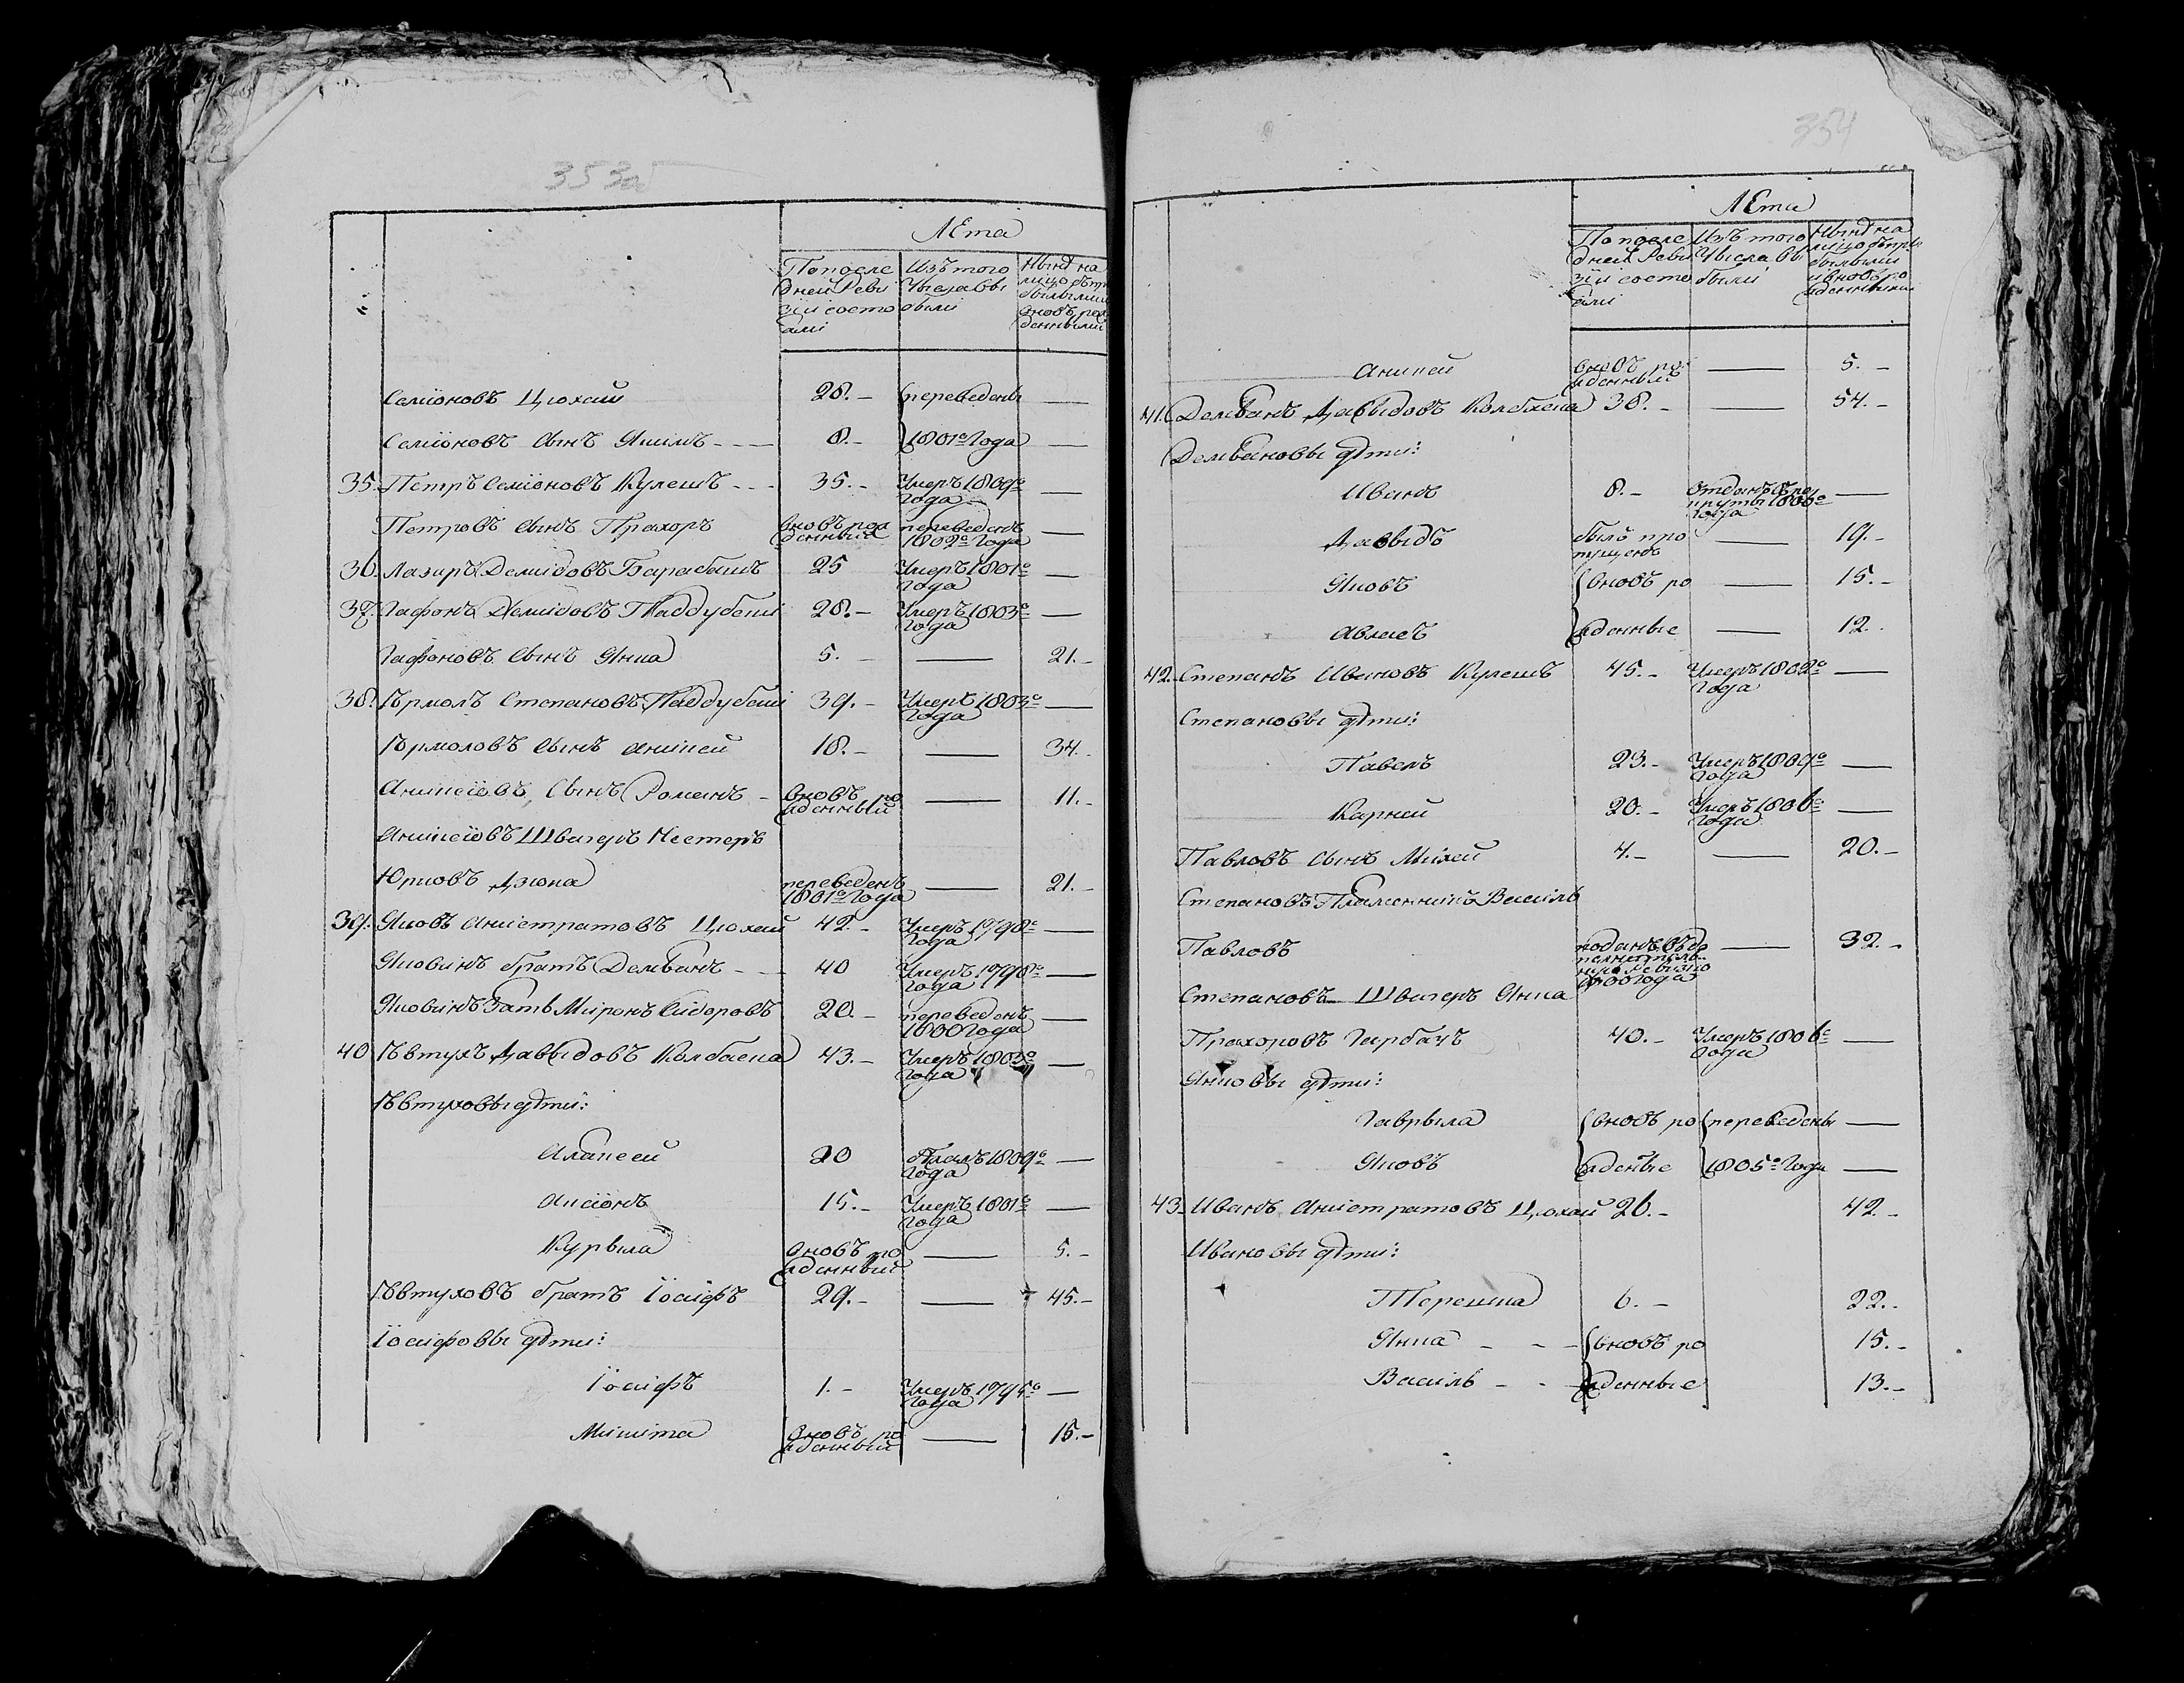 353об
Лета
По после Изъ того Нынѣ на
дней Реви числа вы лицо съ при
зіи состо были былыми
али вновь рож
денными
Семіоновъ Цюхай 28.- переведены —
Семіоновъ сынъ Якимъ 8.- 1801го Года —
35. Петръ Семіоновъ Кулешъ 35.- Умеръ 1809го —
года
Петровъ сынъ Прахоръ вновь рож переведенъ —
денный 1802го Года
36. Лазаръ Демидовъ Барабашъ 25 Умеръ 1801го —
года
37. Гафонъ Демидовъ Паддубскій 28.- Умеръ 1803го —
года
Гафоновъ сынъ Янка 5.- — 21.-
38. Ермолъ Степановъ Паддубскій 39.- Умеръ 1803го —
года
Ермоловъ сынъ Аникей 18.- — 34.-
Аникеіовъ сынъ Романъ вновь ро — 11.-
жденный
Аникеіовъ Швагеръ Нестеръ
Юрковъ Дзюка переведенъ — 21.-
1801го Года
39. Яковъ Аникстратовъ Цюхай 42.- Умеръ 1798го —
года
Яковинъ братъ Демьянъ 40 Умеръ 1798го —
года
Яковинъ Зать Миронъ Сидоровъ 20.- переведенъ —
1800 Года
40 Евтухъ Давыдовъ Колбаска 43.- Умеръ 1802го —
года
Евтуховы дѣти:
Алапсей 20 1809го —
года
Аксіонъ 15.- Умеръ 1801го —
года
Курыла вновь ро — 5.-
жденный
Евтуховъ братъ Іосифъ 29.- — 45.-
Іосифовы дѣти:
Іосифъ 1.- Умеръ 1795го —
года
Микита вновь ро — 15.-
жденный
354
Лета
По после Изъ того Нынѣ на
дней Реви числа вы лицо съ при
зіи состо были былыми
али и вновь ро
жденными
Аникей вновь ро — 5.-
жденный
41. Демьянъ Давыдовъ Колбаска 38.- — 54.-
Демьяновы дѣти:
Иванъ 8.- отданъ в ре —
круты 1808го
года
Давыдъ былъ про — 19.-
пущенъ
Яковъ вновь ро — 15.-
Авласъ жденные — 12.
42. Степанъ Ивановъ Кулешъ 45.- Умеръ 1802го —
года
Степановы дѣти:
Павелъ 23.- Умеръ 1809го —
года
Карней 20.- Умеръ 1806го —
года
Павловъ сынъ Михей 4.- — 20.-
Степановъ Племенникъ Василь
Павловъ поданъ в до — 32.-
полнитель
ную ревизію
1800 года
Степановъ Швагеръ Янка
Прахоровъ Гарбачъ 40.- Умеръ 1806го —
года
Янковы дѣти:
Гаврыла вновь ро переведены —
Яковъ жденые 1805го Года —
43. Иванъ Аникстратовъ Цюхай 26.- 42.-
Ивановы дѣти:
Терешка 6.- 22.-
Янка вновь ро 15.-
Василь жденные 13.-